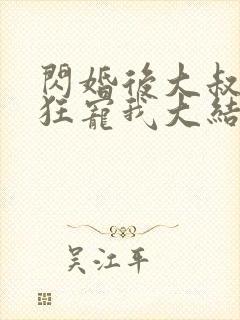 閃婚後大叔
狂寵我大結
吳江平